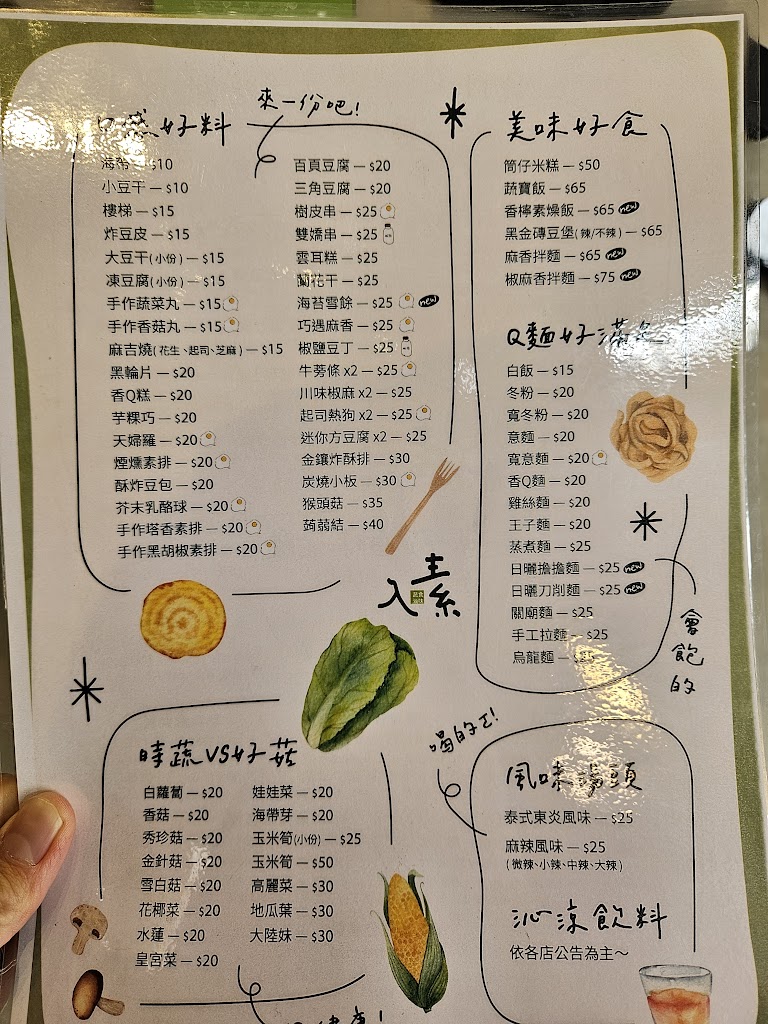 來一份吧!
口感好料
海帶 — $10
小豆干 — $10
樓梯 — $15
炸豆皮 — $15
大豆干(小份) — $15
凍豆腐(小份) — $15
手作蔬菜丸 — $15
手作香菇丸 — $15
麻吉燒(花生、起司、芝麻) — $15
黑輪片 — $20
香Q糕 — $20
芋粿巧 — $20
天婦羅 — $20
煙燻素排 — $20
酥炸豆包 — $20
芥末乳酪球 — $20
手作塔香素排 — $20
手作黑胡椒素排 — $20
百頁豆腐 — $20
三角豆腐 — $20
樹皮串 — $25
雙嬌串 — $25
雲耳糕 — $25
蘭花干 — $25
海苔雪餘 — $25 new
巧遇麻香 — $25
椒鹽豆丁 — $25
牛蒡條 x2 — $25
川味椒麻 x2 — $25
起司熱狗 x2 — $25
迷你方豆腐 x2 — $25
金鑲炸酥排 — $30
炭燒小板 — $30
猴頭菇 — $35
蒟蒻結 — $40
美味好食
筒仔米糕 — $50
蔬寶飯 — $65
香檸素燥飯 — $65 new
黑金磚豆堡(辣/不辣) — $65
麻香拌麵 — $65 new
椒麻香拌麵 — $75 new
Q麵好滿足
白飯 — $15
冬粉 — $20
寬冬粉 — $20
意麵 — $20
寬意麵 — $20
香Q麵 — $20
雞絲麵 — $20
王子麵 — $20
蒸煮麵 — $25
日曬擔擔麵 — $25 new
日曬刀削麵 — $25 new
關廟麵 — $25
手工拉麵 — $25
烏龍麵 — $25
會飽的
入素
時蔬VS好菇
白蘿蔔 — $20
香菇 — $20
秀珍菇 — $20
金針菇 — $20
雪白菇 — $20
花椰菜 — $20
水蓮 — $20
皇宮菜 — $20
娃娃菜 — $20
海帶芽 — $20
玉米筍(小份) — $25
玉米筍 — $50
高麗菜 — $30
地瓜葉 — $30
大陸妹 — $30
喝的ㄛ!
風味湯頭
泰式東炎風味 — $25
麻辣風味 — $25
(微辣、小辣、中辣、大辣)
沁涼飲料
依各店公告為主～